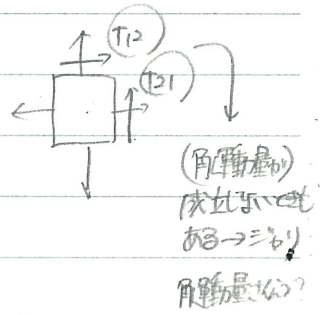 T12
T21
(角運動量が)
成立しないときも
ある→ジャリ
角運動量